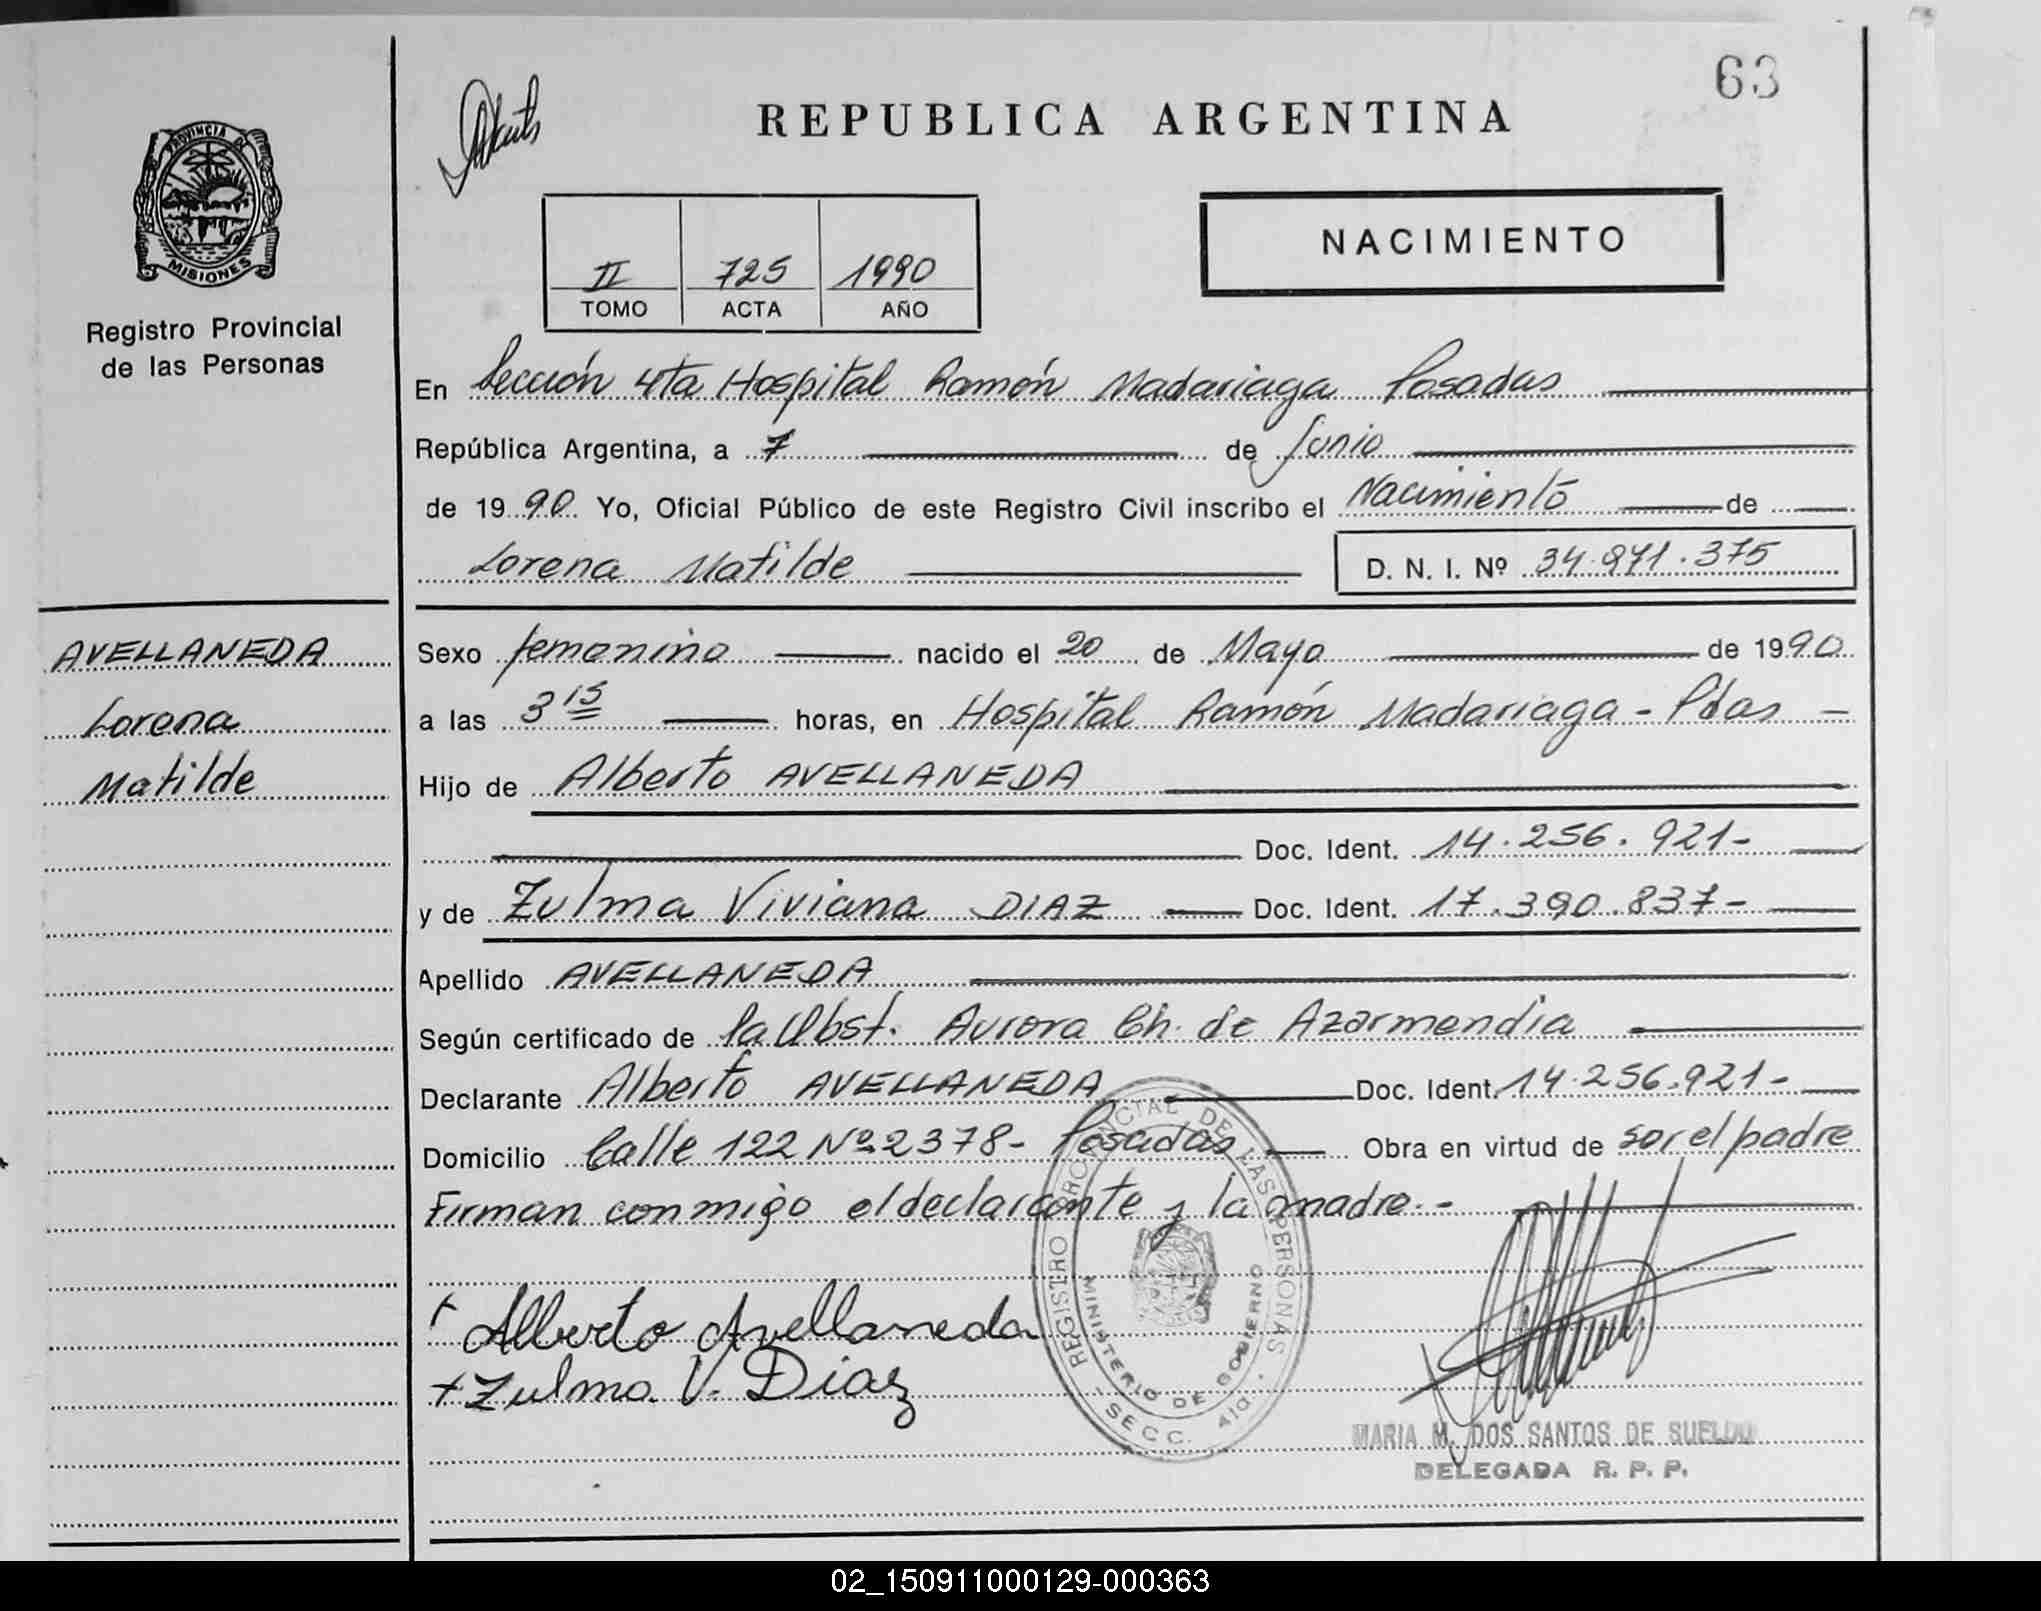 63
REPUBLICA ARGENTINA
PROVINCIA DE
MISIONES
Registro Provincial
de las Personas
NACIMIENTO
II 725 1990
TOMO ACTA AÑO
En Sección 4ta Hospital Ramón Madariaga Posadas
República Argentina, a 7 de Junio
de 1990 Yo, Oficial Público de este Registro Civil inscribo el Nacimiento de
Lorena Matilde D. N. I. Nº 34.971.375
AVELLANEDA
Lorena
Matilde
Sexo femenino nacido el 20 de Mayo de 1990
a las 3 15 horas, en Hospital Ramón Madariaga - Pdas -
Hijo de Alberto AVELLANEDA
Doc. Ident. 14.256.921-
y de Zulma Viviana DIAZ Doc. Ident. 17.390.837-
Apellido AVELLANEDA
Según certificado de la Obst. Aurora Ch. de Azarmendia
Declarante Alberto AVELLANEDA Doc. Ident. 14.256.921-
Domicilio Calle 122 Nº 2378- Posadas Obra en virtud de ser el padre
Firman conmigo el declarante y la madre.-
Alberto Avellaneda
Zulma V. Diaz
REGISTRO PROVINCIAL DE LAS PERSONAS
MINISTERIO DE GOBIERNO
- SECC. 4ta. -
MARIA M. DOS SANTOS DE SUELDO
DELEGADA R. P. P.
02_150911000129-000363